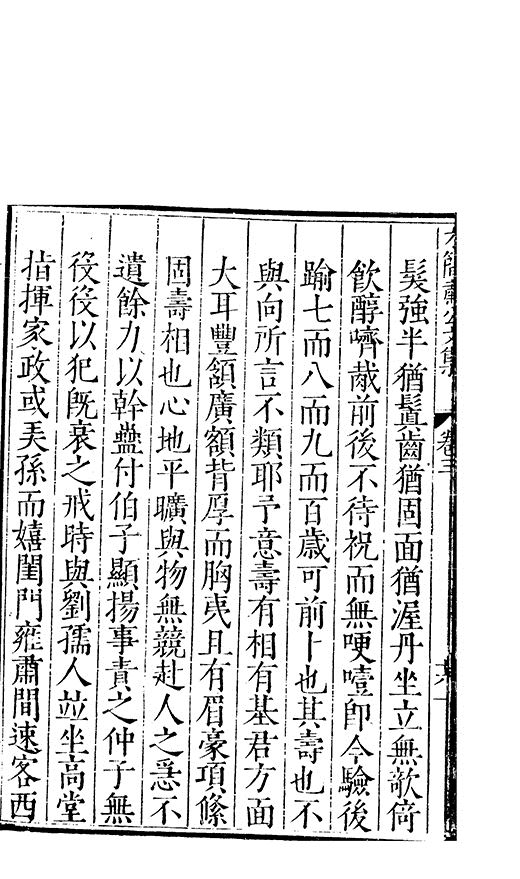 髮強半猶鬒齒猶固面猶渥丹坐立無欹倚
飲醇嚌胾前後不待祝而無哽噎即今驗後
踰七而八而九而百歲可前卜也其壽也不
與向所言不類耶予意壽有相有基君方面
大耳豐頷廣額背厚而胸夷且有眉豪項絛
固壽相也心地平曠與物無競赴人之急不
遺餘力以幹蠱付伯子顯揚事責之仲子無
役役以犯既衰之戒時與劉孺人並坐高堂
指揮家政或弄孫而嬉閨門雍肅間速客西
卷三